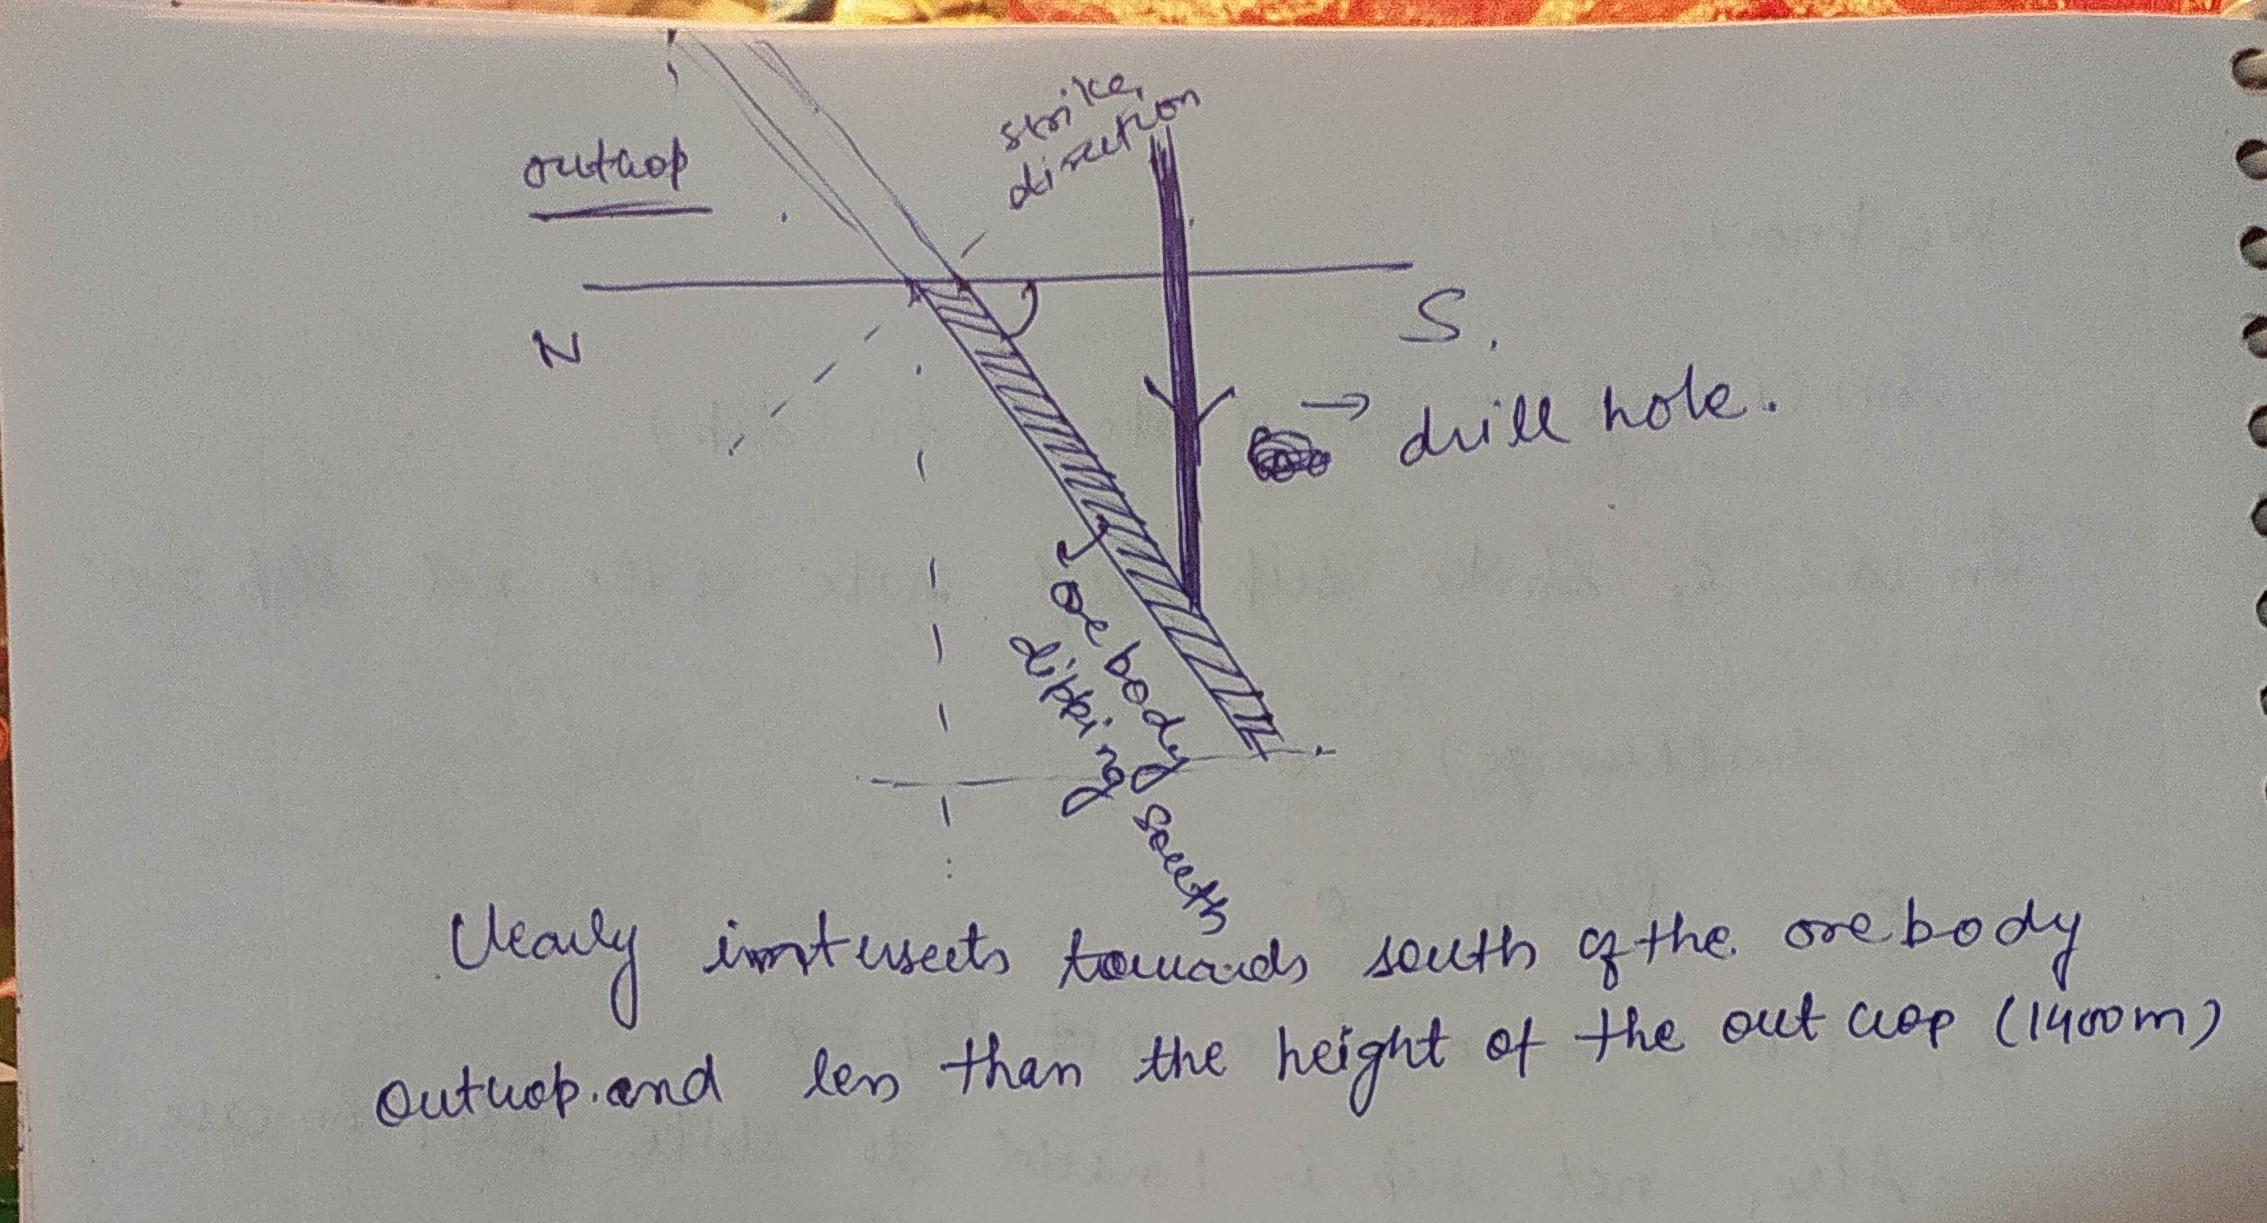 strike
direction
outcrop
N
S.
→ drill hole.
orebody
dipping south
Clearly intersects towards south of the orebody
outcrop. and less than the height of the out crop (1400m)